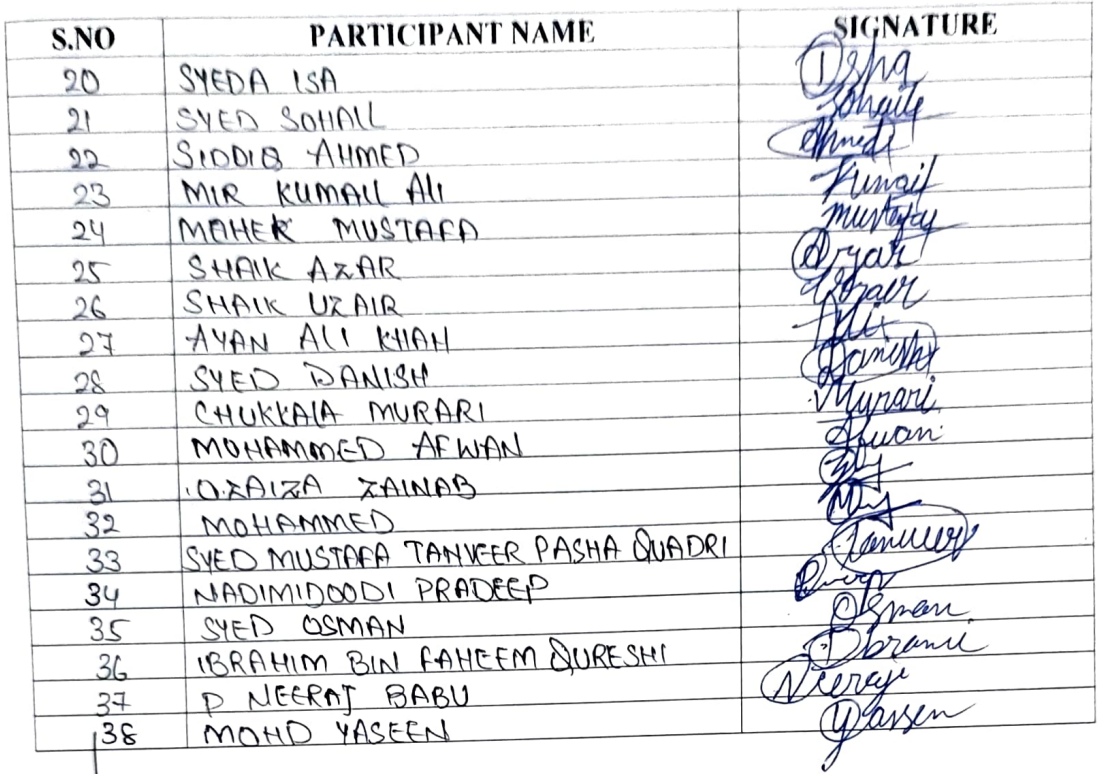 S.NO PARTICIPANT NAME SIGNATURE
20 SYEDA ISA Isha
21 SYED SOHAIL Sohaile
22 SIDDIQ AHMED Ahmed
23 MIR KUMAIL Ali Kumail
24 MAHEK MUSTAFA mustafa
25 SHAIK AZAR
26 SHAIK UZAIR Uzair
27 AYAN ALI KHAN
28 SYED DANISH Danish
29 CHUKKALA MURARI Murari
30 MOHAMMED AFWAN Afwan
31 OZAIZA ZAINAB
32 MOHAMMED
33 SYED MUSTAFA TANVEER PASHA QUADRI Tanveer
34 NADIMIDODDI PRADEEP
35 SYED OSMAN Osman
36 IBRAHIM BIN FAHEEM QURESHI
37 P NEERAJ BABU Neeraj
38 MOHD YASEEN Yassen